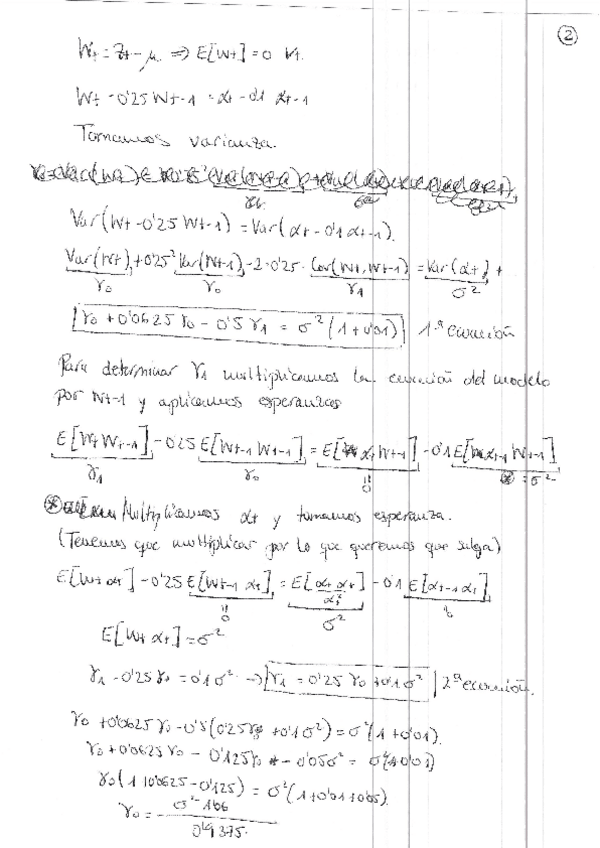 2
Wt = Zt - μ ⇒ E[Wt] = 0 ∀t.
Wt - 0'25 Wt-1 = αt - 0'1 αt-1
Tomamos varianza.
Var(Wt - 0'25 Wt-1) = Var(αt - 0'1 αt-1).
Var(Wt) + 0'25² Var(Wt-1) - 2·0'25· Cov(Wt, Wt-1) = Var(αt) +
γ0 γ0 γ1 σ²
γ0 + 0'0625 γ0 - 0'5 γ1 = σ² (1 + 0'01) 1ª ecuación
Para determinar γ1 multiplicamos la ecuación del modelo
por Wt-1 y aplicamos esperanzas
E[Wt Wt-1] - 0'25 E[Wt-1 Wt-1] = E[αt Wt-1] - 0'1 E[αt-1 Wt-1]
γ1 γ0 0 = σ²
Multiplicamos αt y tomamos esperanza.
(Tenemos que multiplicar por lo que queremos que salga)
E[Wt αt] - 0'25 E[Wt-1 αt] = E[αt αt] - 0'1 E[αt-1 αt]
0 αt² σ²
E[Wt αt] = σ²
γ1 - 0'25 γ0 = 0'1 σ² → γ1 = 0'25 γ0 + 0'1 σ² 2ª ecuación.
γ0 + 0'0625 γ0 - 0'5 (0'25 γ0 + 0'1 σ²) = σ² (1 + 0'01).
γ0 + 0'0625 γ0 - 0'125 γ0 - 0'05 σ² = σ² (1 + 0'01)
γ0 (1 + 0'0625 - 0'125) = σ² (1 + 0'01 + 0'05).
γ0 = σ² · 1'06
0'9375.